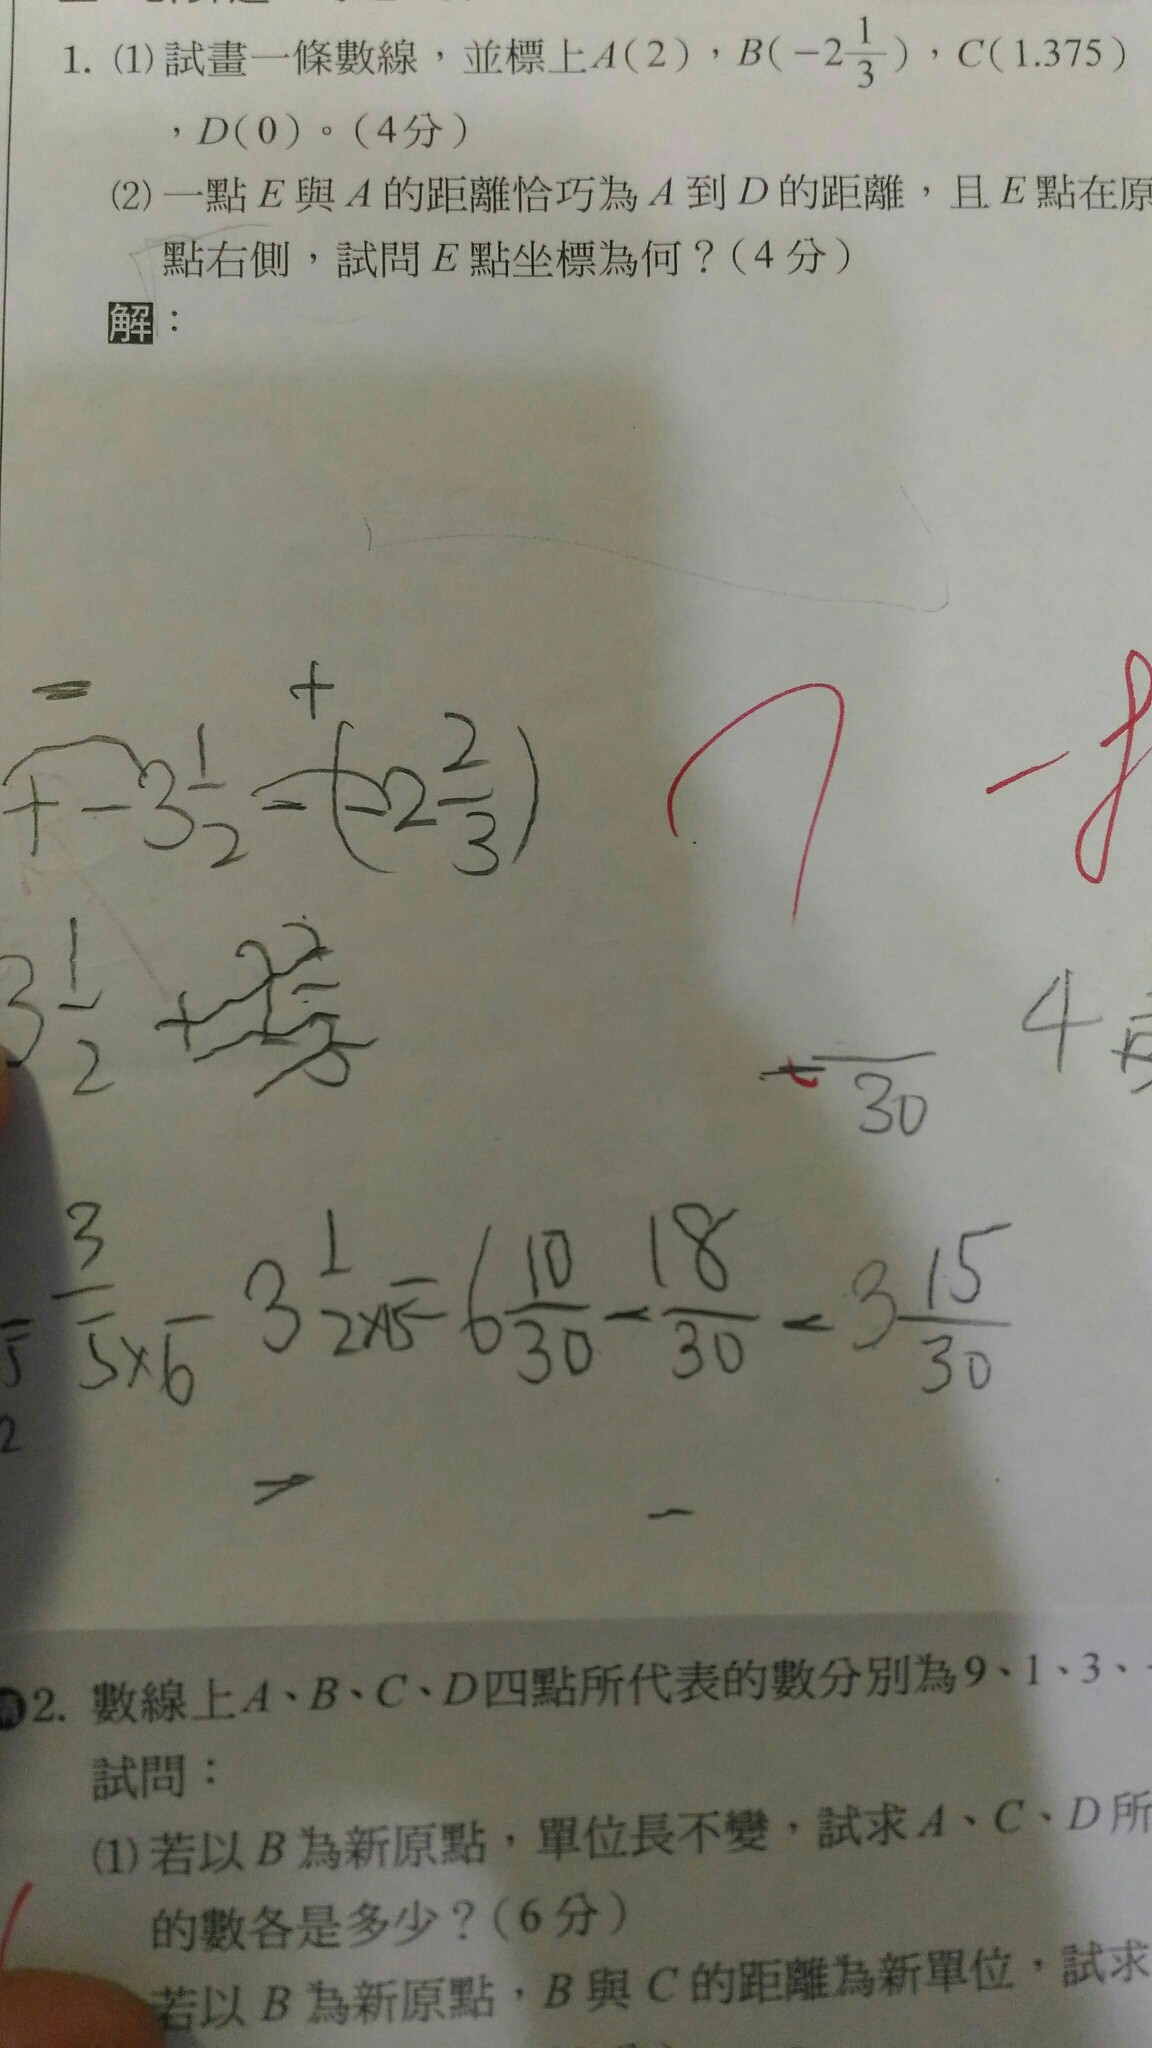 1. (1) 試畫一條數線，並標上A(2)，B(-2 1/3)，C(1.375)
，D(0)。(4分)
(2) 一點 E 與 A 的距離恰巧為 A 到 D 的距離，且 E 點在原
點右側，試問 E 點坐標為何？(4 分)
解：
= +
+ - 3 1/2 - (-2 2/3)
3 1/2
/30 4
3/5×6 3 1/2×15 = 6 10/30 - 18/30 - 3 15/30
= -
2. 數線上A、B、C、D四點所代表的數分別為9、1、3、
試問：
(1) 若以 B 為新原點，單位長不變，試求 A、C、D 所
的數各是多少？(6 分)
若以 B 為新原點，B 與 C 的距離為新單位，試求